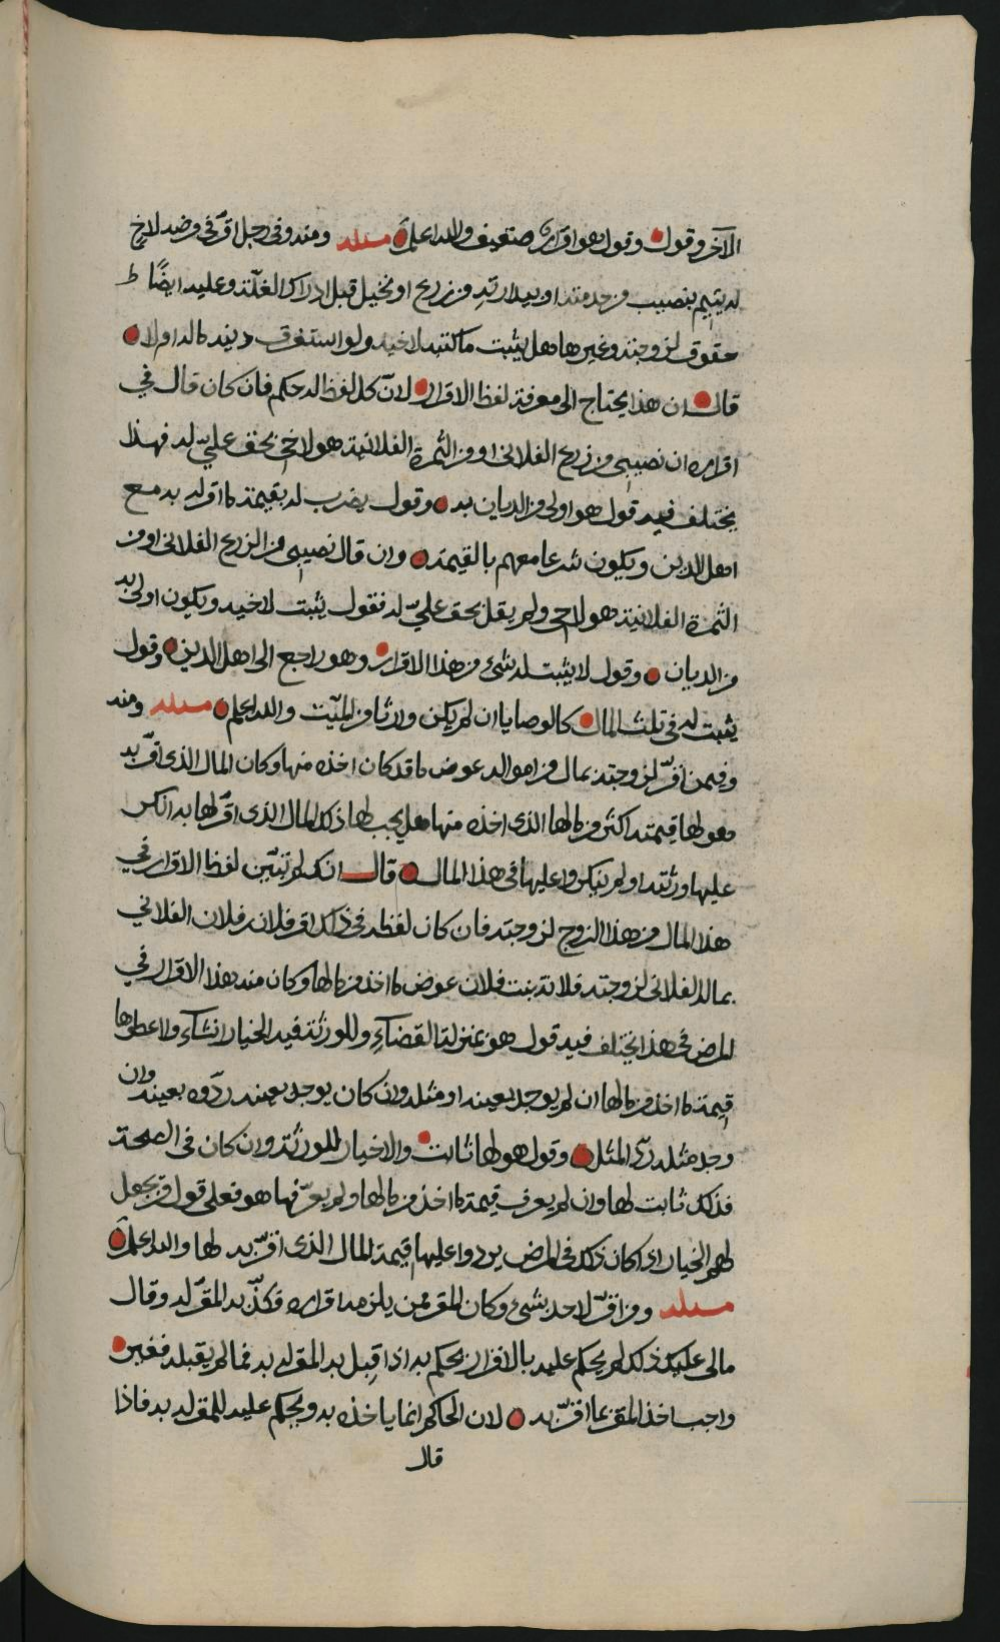 الآخر وقول وقول هو اقرار ضعيف والله اعلم مسئله ومنه وفي رجل اقرّ في مرضه لاخ
له يتيم بنصيب من حد منه او بيدارته من زرع او نخيل قبل ادراك الغلّة وعليه ايضًا
حقوق لزوجته وغيرها هل يثبت ما كتبه لاخيه ولو استغرق دينه ماله ام لا
قال ان هذا يحتاج الى معرفة لفظ الاقرار لانّ كل لفظ له حكم فان كان قال في
اقراره ان نصيبي من زرع الفلاني او من الثمرة الفلانية هو لاخي بحق عليّ له فهذا
يختلف فيه قول هو اولى من الديان به وقول يضرب له بقيمة ما اقر له به مع
اهل الدين ويكون شرعا معهم بالقيمة وان قال نصيبي من الزرع الفلاني او من
الثمرة الفلانية هو لاخي ولم يقل بحق عليّ له فقول يثبت لاخيه ويكون اولى به
من الديان وقول لا يثبت له شيء من هذا الاقرار وهو راجع الى اهل الدين وقول
يثبت له في ثلث المال كالوصايا ان لم يكن وارثا من الميّت والله اعلم مسئله ومنه
وفيمن اقرّ لزوجته بمال من امواله عوض ما قد كان اخذه منها وكان المال الذي اقرّ به
هو لها قيمته اكثر من مالها الذي اخذه منها هل يجب لها ذلك المال الذي اقرّ لها به انكر
عليها ورثته او لم ينكروا عليها في هذا المال قال انك لم تبيّن لفظ الاقرار في
هذا المال من هذا الزوج لزوجته فان كان لفظه في ذلك اقر فلان بن فلان الفلاني
بماله الفلاني لزوجته فلانة بنت فلان عوض ما اخذ من مالها وكان منه هذا الاقرار في
المرض ففي هذا يختلف فيه قول هو بمنزلة القضاء وللورثة فيه الخيار ان شاءوا اعطوها
قيمة ما اخذ من مالها ان لم يوجد بعينه او مثله وان كان يوجد بعينه ردّوه بعينه وان
وجد مثله ردّ المثل وقول هو لها ثابت ولا خيار للورثة وان كان في الصحة
فذلك ثابت لها وان لم يعرف قيمة ما اخذ من مالها ولم يعرّفها هو فعلى قول من يجعل
لهم الخيار اذا كان ذلك في المرض يردوا عليها قيمة المال الذي اقرّ به لها والله اعلم
مسئله ومن اقرّ لاحد بشيء وكان المقر ممن يلزمه اقراره فكذّبه المقرّ له وقال
ما لي عليك ذلك لم يحكم عليه بالاقرار يحكم به اذا قبل به المقر له به فما لم يقبله فغير
واجب اخذ المقر بما اقرّ به لان الحاكم انما ياخذه به ويحكم عليه للمقر له به فاذا
قال